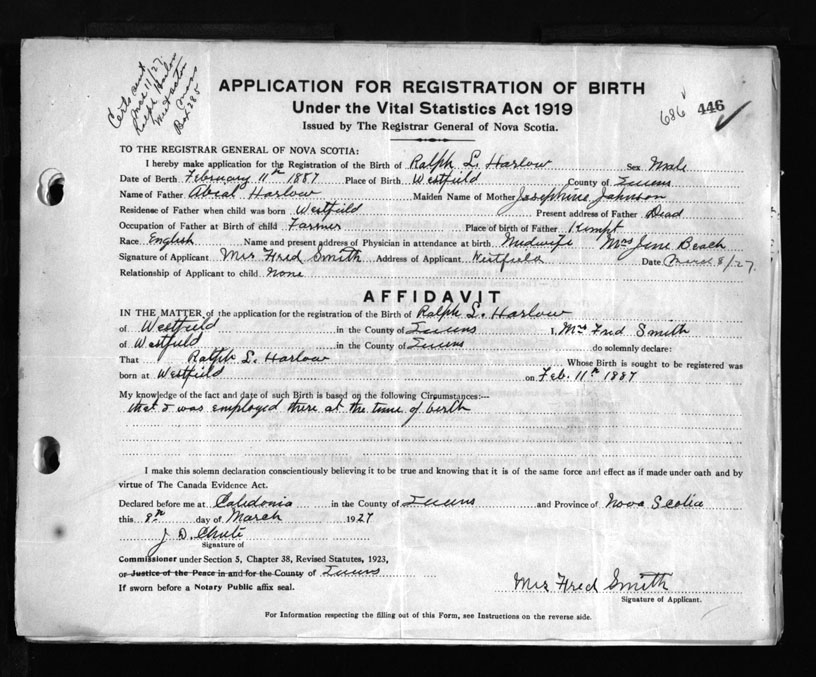 Cert sent
Mar 11/27
Ralph Harlow
Box 285
APPLICATION FOR REGISTRATION OF BIRTH
Under the Vital Statistics Act 1919
Issued by The Registrar General of Nova Scotia.
686 446
TO THE REGISTRAR GENERAL OF NOVA SCOTIA:
I hereby make application for the Registration of the Birth of Ralph L. Harlow Sex Male
Date of Birth February 11th 1887 Place of Birth Westfield County of Queens
Name of Father Abial Harlow Maiden Name of Mother Josephine Johnson
Residense of Father when child was born Westfield Present address of Father Dead
Occupation of Father at Birth of child Farmer Place of birth of Father Kempt
Race English Name and present address of Physician in attendance at birth Midwife Mrs Beach
Signature of Applicant Mrs Fred Smith Address of Applicant Westfield Date March 8/27.
Relationship of Applicant to child None
AFFIDAVIT
IN THE MATTER of the application for the registration of the Birth of Ralph L. Harlow
of Westfield in the County of Queens I, Mrs Fred Smith
of Westfield in the County of Queens do solemnly declare:
That Ralph L. Harlow Whose Birth is sought to be registered was
born at Westfield on Feb. 11th 1887
My knowledge of the fact and date of such Birth is based on the following Circumstances:—
that I was employed there at the time of birth
I make this solemn declaration conscientiously believing it to be true and knowing that it is of the same force and effect as if made under oath and by
virtue of The Canada Evidence Act.
Declared before me at Caledonia in the County of Queens and Province of Nova Scotia
this 8th day of March 1927
J. D. Chute
Signature of
Commissioner under Section 5, Chapter 38, Revised Statutes, 1923,
or Justice of the Peace in and for the County of Queens
If sworn before a Notary Public affix seal.
Mrs Fred Smith
Signature of Applicant.
For Information respecting the filling out of this Form, see Instructions on the reverse side.